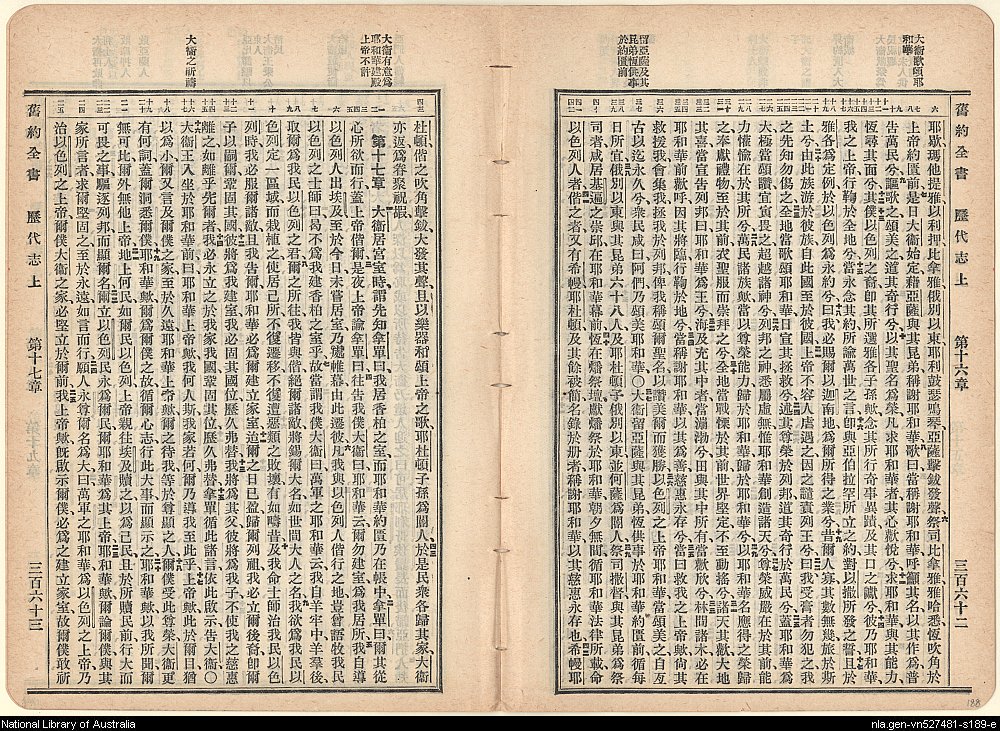 大衛歌頌耶
和華
留亞薩及其
昆弟恆供事
於約匱前
舊約全書 歷代志上 第十六章 三百六十二
耶歇瑪他提雅以利押比拿雅俄別以東耶利鼓瑟鳴琴亞薩擊鈸發聲祭司比拿雅雅哈悉恆吹角於
上帝約匱前是日大衛始定藉亞薩與其昆弟稱謝耶和華歌曰當稱謝耶和華呼籲其名以其作爲普
告萬民兮謳歌之頌美之道其奇行兮以其聖名爲榮凡求耶和華者其心歡悅兮求耶和華與其能力
恆尋其面兮其僕以色列之裔卽其所選雅各子孫歟念其所行奇事異蹟及其口之讞兮彼乃耶和華
我之上帝行鞫於全地兮當永念其約所諭萬世之言卽與亞伯拉罕所立之約對以撒所發之誓且於
雅各爲定例於以色列爲永約兮曰我必賜爾以迦南地爲爾所得之業兮昔爾人寡其數無幾旅於斯
土兮由此族游於彼族自此國至於彼國上帝不容人虐遇之因之譴責列王曰我受膏者勿犯之我
之先知勿傷之全地當歌頌耶和華日日宣其拯救兮述其尊榮於列邦道其奇行於萬民兮蓋耶和華爲
大極當頌讚宜寅畏之超越諸神兮列邦之神悉屬虛無惟耶和華創造諸天兮尊榮威嚴在於其前能
力懽愉在於其所兮萬民諸族歟當以尊榮能力歸於耶和華兮以耶和華名應得之榮歸
之奉獻禮物至於其前衣聖服而崇拜之兮全地當戰慄於其前世界堅定不至動搖兮諸天其懽大地
其喜當宣告列邦曰耶和華爲王兮海及充其中者當澎渤兮田與其中所有當歡欣兮林間諸木必在
耶和華前歡呼因其將臨行鞫於地兮當稱謝耶和華以其爲善慈惠永存兮當曰救我之上帝歟尙其
救援我會集我拯我於列邦俾我稱頌爾聖名以讚美爾而獲勝兮以色列之上帝耶和華當頌美之自亙
古以迄永久兮衆民咸曰阿們乃頌美耶和華〇大衛留亞薩與其昆弟恆供事於耶和華約匱前循每
日所宜俄別以東與其昆弟六十八人及耶杜頓子俄別以東並何薩爲閽人祭司撒督與其昆弟爲祭
司者咸居基遍之崇邱在耶和華幕前恆在燔祭壇獻燔祭於耶和華朝夕無間循耶和華法律所載命
以色列人者偕之者又有希幔耶杜頓及其餘被簡名錄於册者稱謝耶和華以其慈惠永存也希幔耶
大衛有意爲
耶和華建殿
上帝不許
大衛之祈禱
杜頓偕之吹角擊鈸大發其聲且以樂器和頌上帝之歌耶杜頓子孫爲閽人於是民衆各歸其家大衛
亦返爲眷聚祝嘏
第十七章 大衛居宮室時謂先知拿單曰我居香柏之室而耶和華約匱乃在帳中拿單曰爾其從
心所欲而行蓋上帝偕爾是夜上帝諭拿單曰往告我僕大衛曰耶和華云爾勿建室爲我所居自導
以色列人出埃及至於今日未嘗居室乃爐帷幕由此遷彼凡我與以色列人偕行之地豈曾語牧我民
以色列之士師曰曷不爲我建香柏之室乎故當謂我僕大衛曰萬軍之耶和華云我自羊牢中羊羣後
取爾爲我民以色列之君爾之所往我皆與偕絕爾諸敵將錫爾大名如世間大人之名我欲爲我民以
色列定一區域而栽植之使居己所不復遷移不復遭惡類之敗壞有如疇昔及我命士師治我民以色
列時我必服爾諸敵且我告爾耶和華必爲爾建立家室迨爾之日已盈歸爾列祖我必立爾後裔卽爾
子以嗣爾鞏固其國彼將爲我建室我必固其國位歷久弗替我將爲其父彼將爲我子不使我之慈惠
離之如離乎先爾者我必永立之於我家我國鞏固其位歷久弗替拿單循此諸言依此啟示告大衛〇
大衛王入坐於耶和華前曰耶和華上帝歟我何人斯我家若何爾乃導我至此乎上帝歟此於爾目猶
以爲小爾又言及爾僕之家至於久遠耶和華上帝歟爾之待我等於尊顯之人爾僕受此尊榮大衛更
有何詞蓋爾洞悉爾僕也耶和華歟爾爲爾僕之故循爾心志行此大事而顯示之耶和華歟以我所聞爾
無可比爾外無他上帝地上何民如爾民以色列上帝親往埃及贖之以爲己民且於所贖民前行大而
可畏之事驅逐列邦而顯爾名爾立以色列民永爲爾民耶和華爲其上帝耶和華歟爾論爾僕與其
家所言者求爾堅固之至於永遠如言而行願人永尊爾名爲大曰萬軍之耶和華爲以色列之上帝乃
治以色列之上帝爾僕大衛之家必堅立於爾前我上帝歟旣啟示爾僕必爲之建立家室故爾僕敢祈
舊約全書 歷代志上 第十七章 三百六十三
188
National Library of Australia
nla.gen-vn527481-s189-e